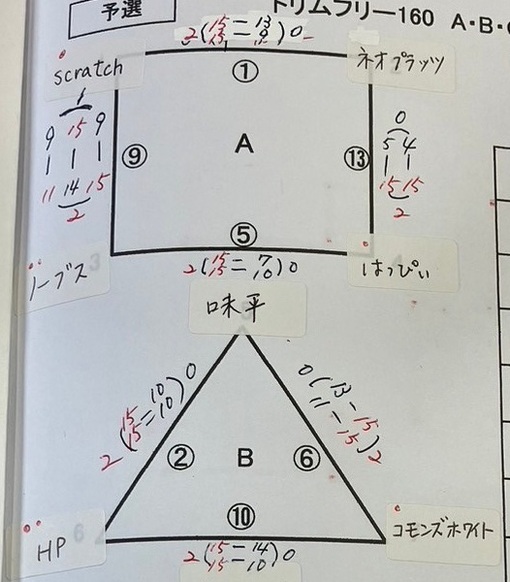 予選
トリムフリー160 A・B・
2(15=13 15=9)0
scratch
ネオプラッツ
①
1
9 15 9
11 14 15
2
⑨
A
⑬
0
5 4
15 15
2
⑤
ノーブス
3
2(15=7 15=10)0
はっぴぃ
味平
2(15=10 15=10)0
0(13-15 11-15)2
②
B
⑥
⑩
6
HP
コモンズホワイト
2(15=14 15=10)0